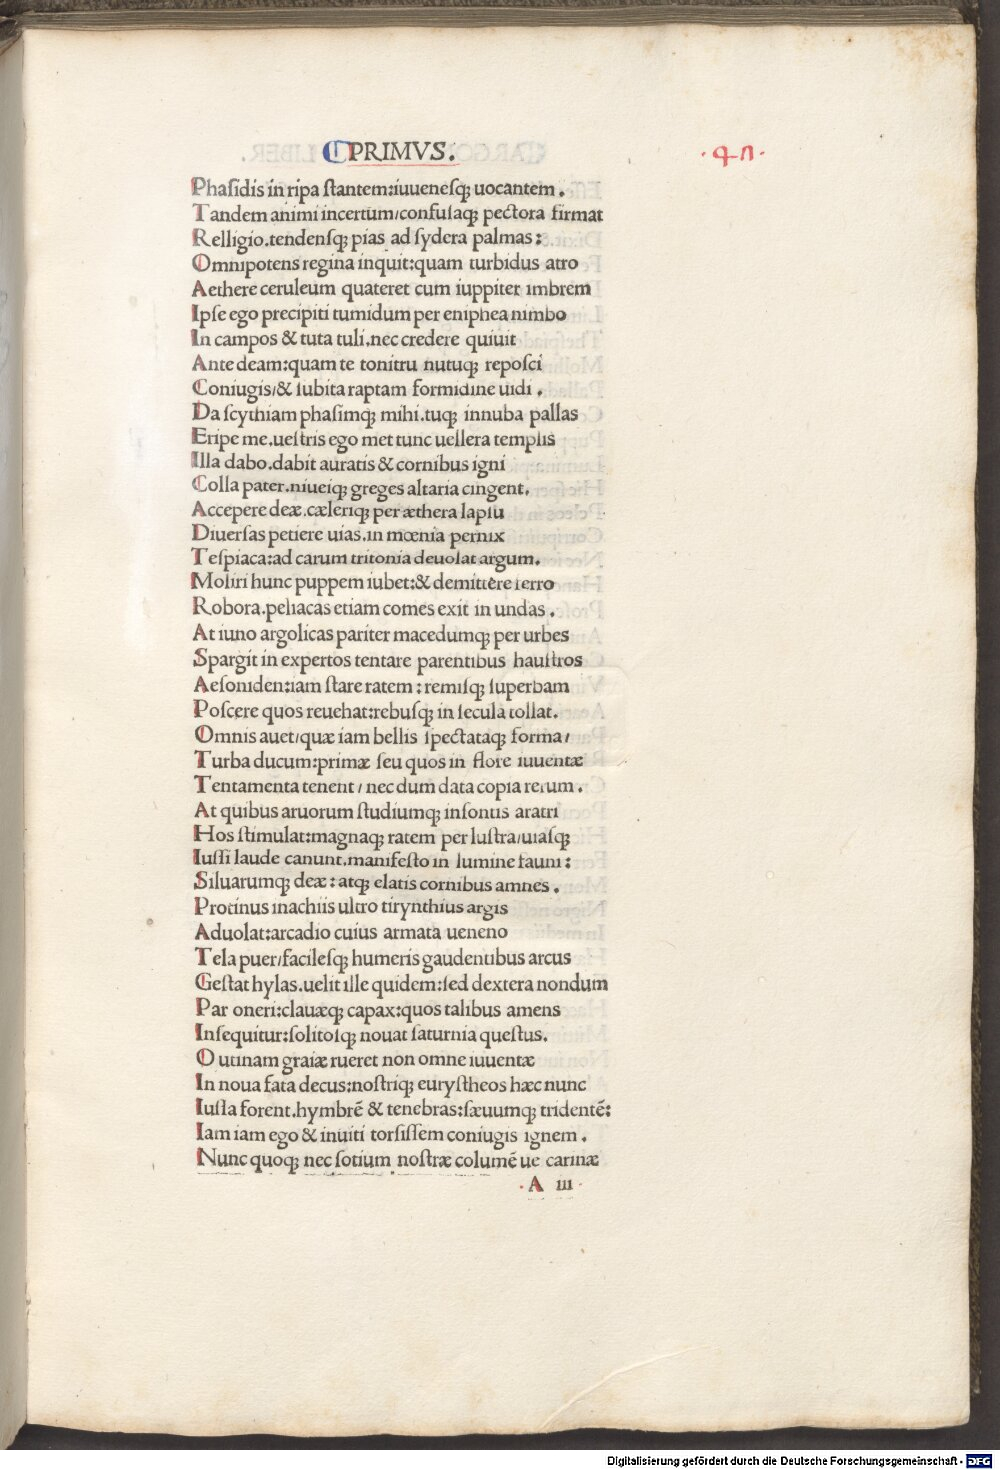 PRIMVS.
Phasidis in ripa stantem:iuuenesq; uocantem.
Tandem animi incertum/confusaq; pectora firmat
Relligio.tendensq; pias ad sydera palmas:
Omnipotens regina inquit:quam turbidus atro
Aethere ceruleum quateret cum iuppiter imbrem
Ipse ego precipiti tumidum per eniphea nimbo
In campos & tuta tuli.nec credere quiuit
Ante deam:quam te tonitru nutuq; reposci
Coniugis/& subita raptam formidine uidi.
Da scythiam phasimq; mihi.tuq; innuba pallas
Eripe me.uestris ego met tunc uellera templis
Illa dabo.dabit auratis & cornibus igni
Colla pater.niueiq; greges altaria cingent.
Accepere deæ.cæleriq; per æthera lapsu
Diuersas petiere uias.in mœnia pernix
Tespiaca:ad carum tritonia deuolat argum.
Moliri hunc puppem iubet:& demittere ferro
Robora.peliacas etiam comes exit in undas.
At iuno argolicas pariter macedumq; per urbes
Spargit in expertos tentare parentibus haustros
Aesoniden:iam stare ratem:remisq; superbam
Poscere quos reuehat:rebusq; in secula tollat.
Omnis auet/quæ iam bellis spectataq; forma/
Turba ducum:primæ seu quos in flore iuuentæ
Tentamenta tenent/nec dum data copia rerum.
At quibus aruorum studiumq; insontis aratri
Hos stimulat:magnaq; ratem per lustra/uiasq;
Iussi laude canunt.manifesto in lumine fauni:
Siluarumq; deæ:atq; elatis cornibus amnes.
Protinus inachiis ultro tirynthius argis
Aduolat:arcadio cuius armata ueneno
Tela puer/facilesq; humeris gaudentibus arcus
Gestat hylas.uelit ille quidem:sed dextera nondum
Par oneri:clauæq; capax:quos talibus amens
Insequitur:solitosq; nouat saturnia questus.
O utinam graiæ rueret non omne iuuentæ
In noua fata decus:nostriq; eurystheos hæc nunc
Iussa forent.hymbrē & tenebras:sæuumq; tridentē:
Iam iam ego & inuiti torsissem coniugis ignem.
Nunc quoq; nec sotium nostræ columē ue carinæ
A iii
Digitalisierung gefördert durch die Deutsche Forschungsgemeinschaft - DFG